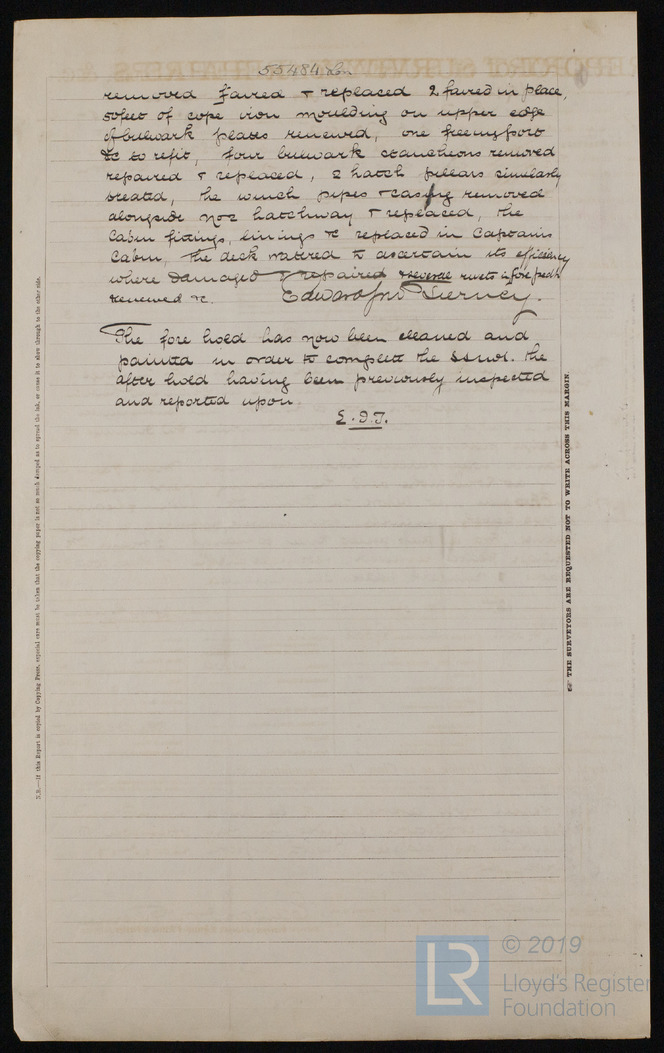 55484 Lon
removed faired & replaced 2 faired in place,
50 feet of cope iron moulding on upper edge
of bulwark plates renewed, one freeing port
&c to refit, four bulwark stancheons removed
repaired & replaced, 2 hatch pillars similarly
treated, the winch pipes & casing removed
alongside No 2 hatchway & replaced, the
Cabin fittings, linings &c replaced in Captains
Cabin, the deck watered to ascertain its efficiency
where damaged & repaired & several rivets in fore peak
renewed &c. Edward Jno Tierney.
The fore hold has now been cleaned and
painted in order to complete the SSNo1. the
after hold having been previously inspected
and reported upon
E.J.T.
N.B.—If this Report is copied by Copying Press, especial care must be taken that the copying paper is not so much damped as to spread the ink, or cause it to show through to the other side.
THE SURVEYORS ARE REQUESTED NOT TO WRITE ACROSS THIS MARGIN.
LR
© 2019
Lloyd's Register
Foundation